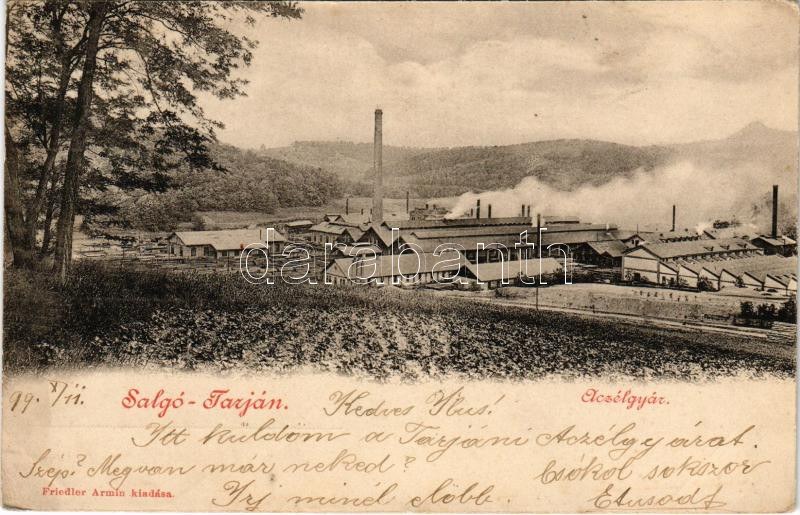 darabanth.com
99. X/11.
Salgó-Tarján.
Aczélgyár.
Kedves Nus!
Itt küldöm a Tarjáni Aczélgyárat.
Szép? Megvan már neked? Csókol sokszor
Irj minél előbb.
Friedler Armin kiadása.